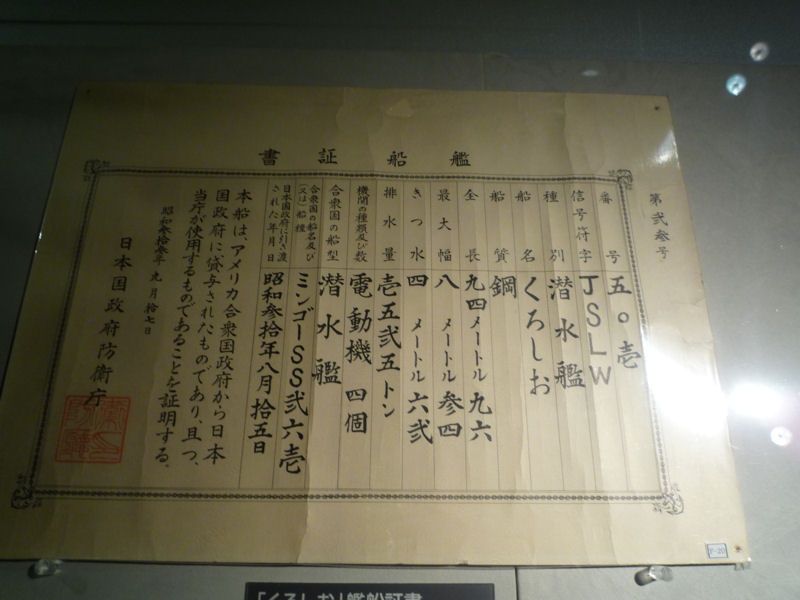 艦船証書
第弐参号
番号 五〇壱
信号符字 JSLW
種別 潜水艦
船名 くろしお
船質 鋼
全長 九四メートル九六
最大幅 八メートル参四
きつ水 四メートル六弐
排水量 壱五弐五トン
機関の種類及び数 電動機四個
合衆国の船型 潜水艦
合衆国の船名及び(又は)船種 ミンゴーSS弐六壱
日本国政府に引き渡された年月日 昭和参拾年八月拾五日
本船は、アメリカ合衆国政府から日本
国政府に貸与されたものであり、且つ、
当庁が使用するものであることを証明する。
昭和参拾参年九月拾七日
日本国政府防衛庁
F-20
「くろしお」艦船証書